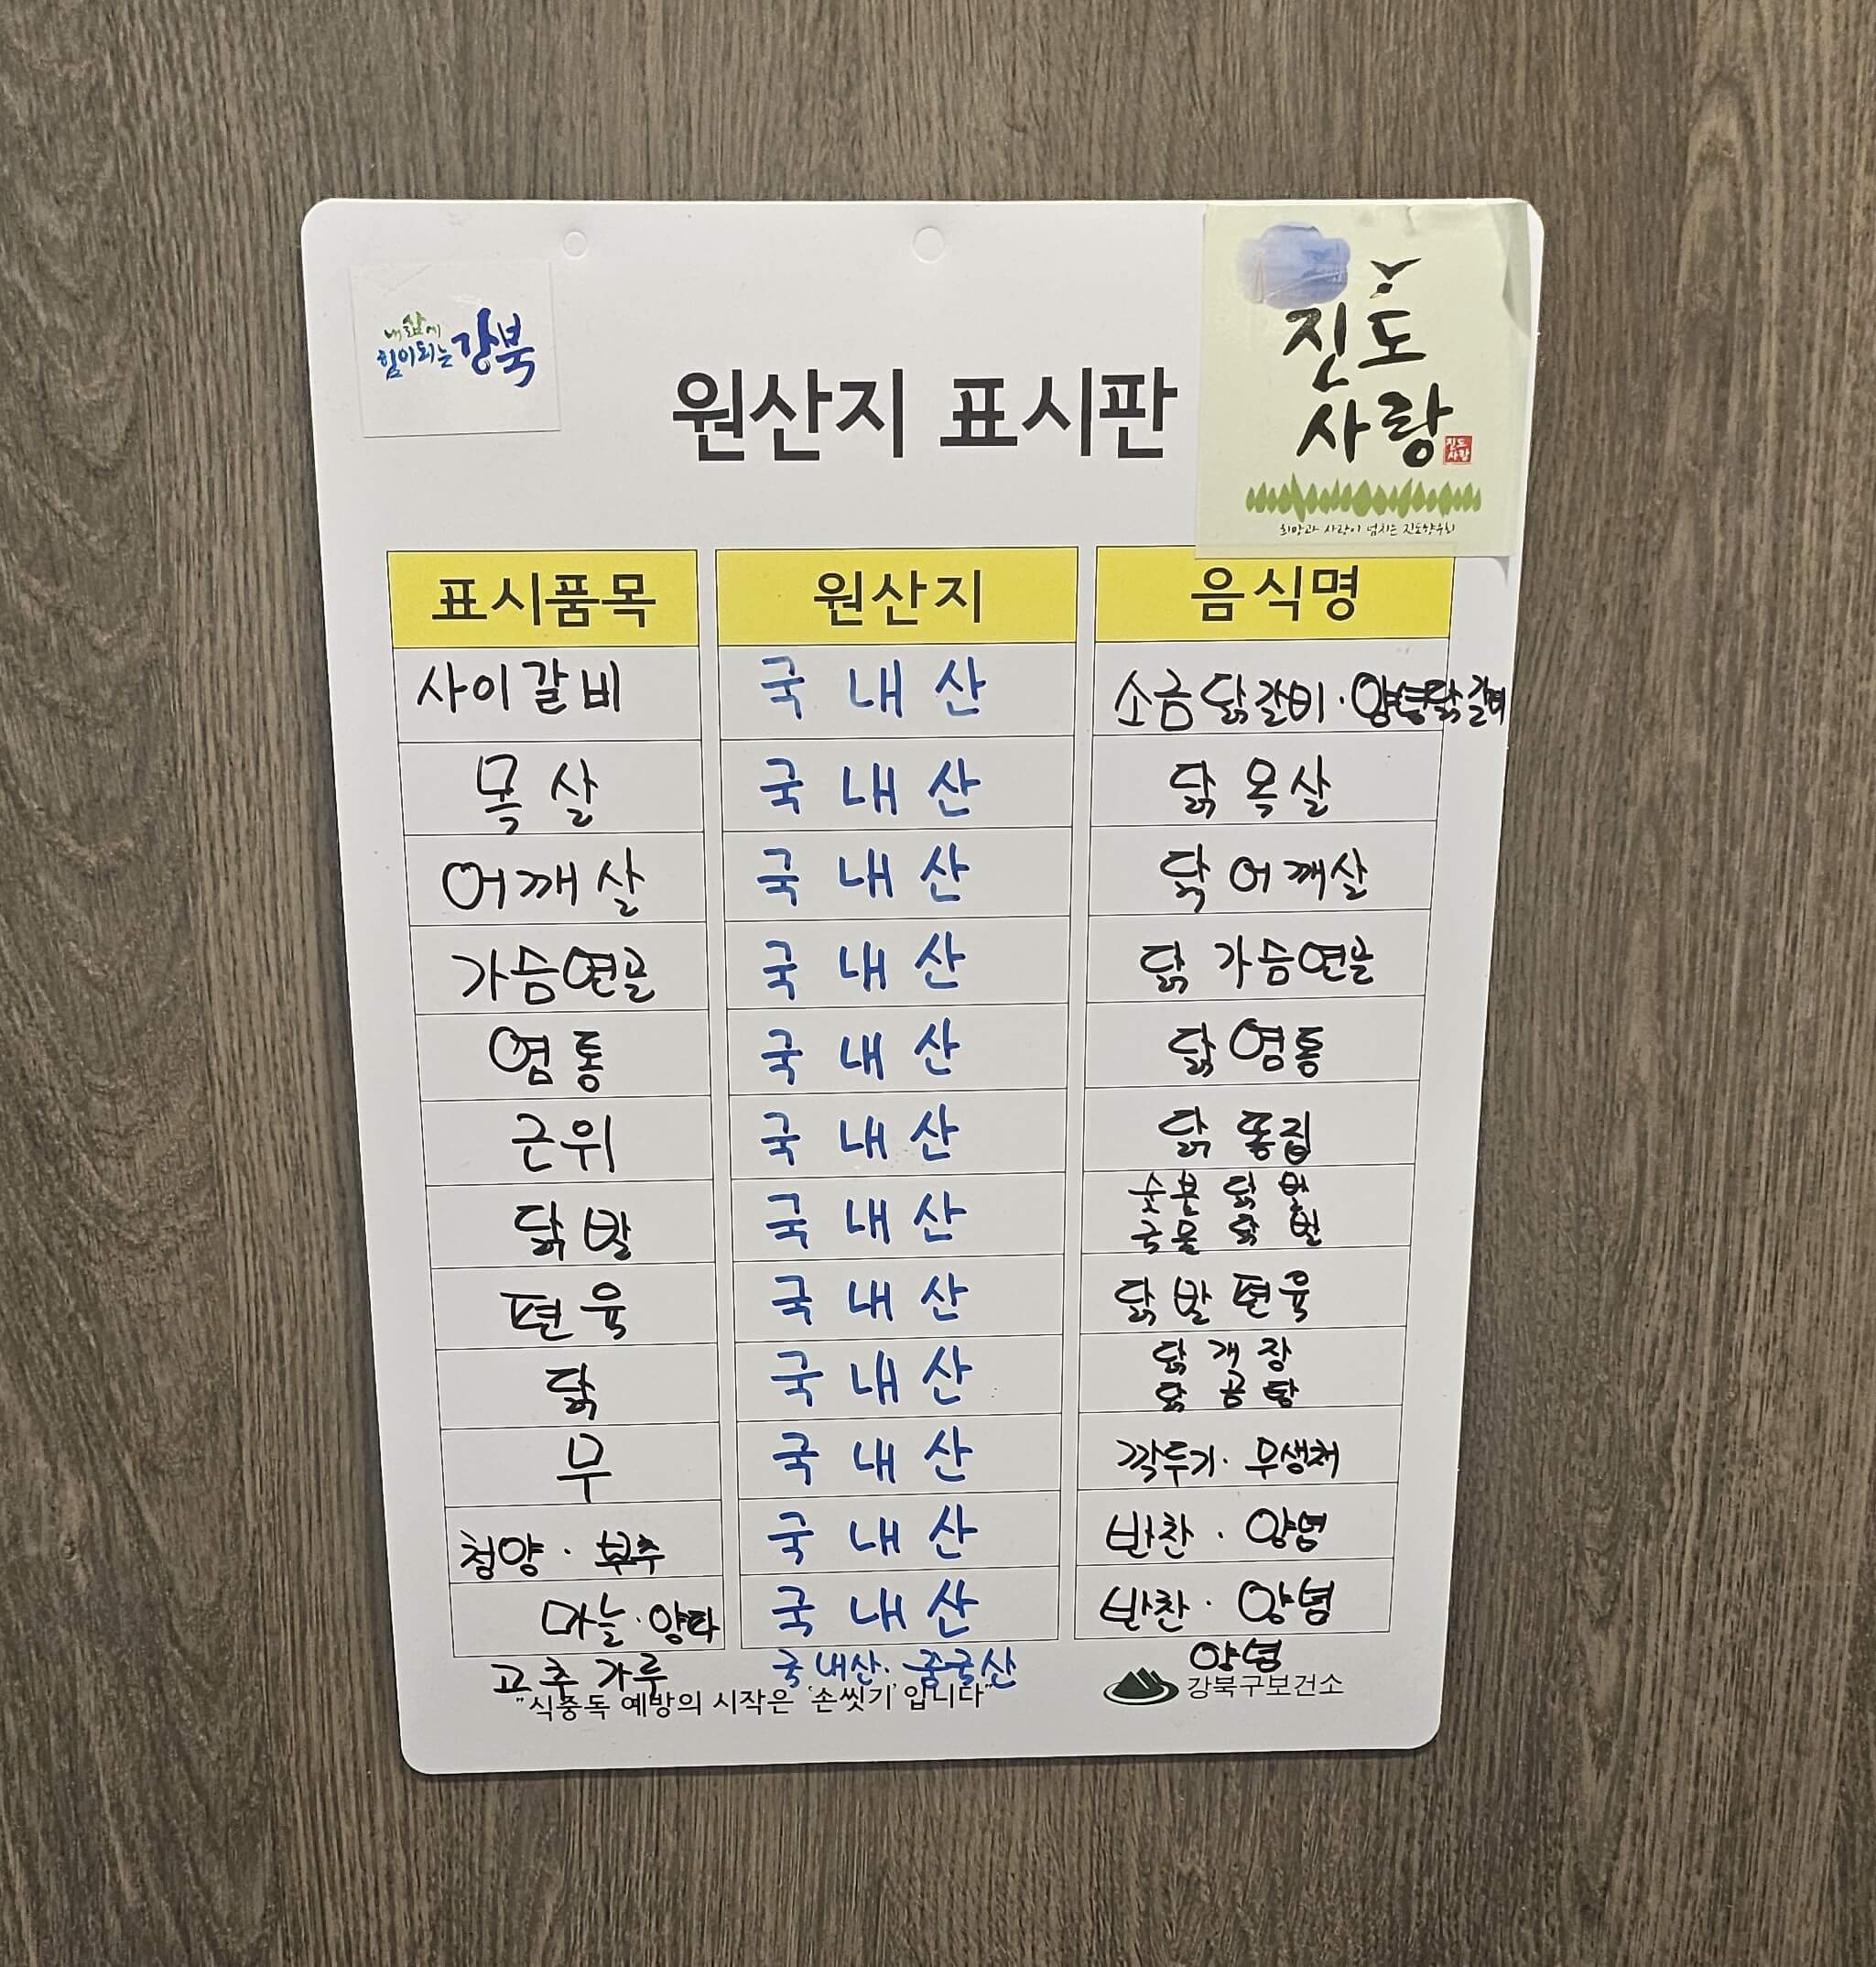 내 삶에
힘이되는 강북
진도
사랑
진도
사랑
희망과 사랑이 넘치는 진도향우회
원산지 표시판
표시품목 원산지 음식명
사이갈비 국내산 소금닭갈비·양념닭갈비
목살 국내산 닭목살
어깨살 국내산 닭어깨살
가슴연골 국내산 닭 가슴연골
염통 국내산 닭염통
근위 국내산 닭 똥집
닭발 국내산 숯불 닭발
국물 닭발
편육 국내산 닭발편육
닭 국내산 닭개장
닭곰탕
무 국내산 깍두기·무생채
청양·부추 국내산 반찬·양념
마늘·양파 국내산 반찬·양념
고추가루 국내산·중국산 양념
"식중독 예방의 시작은 '손씻기'입니다" 강북구보건소